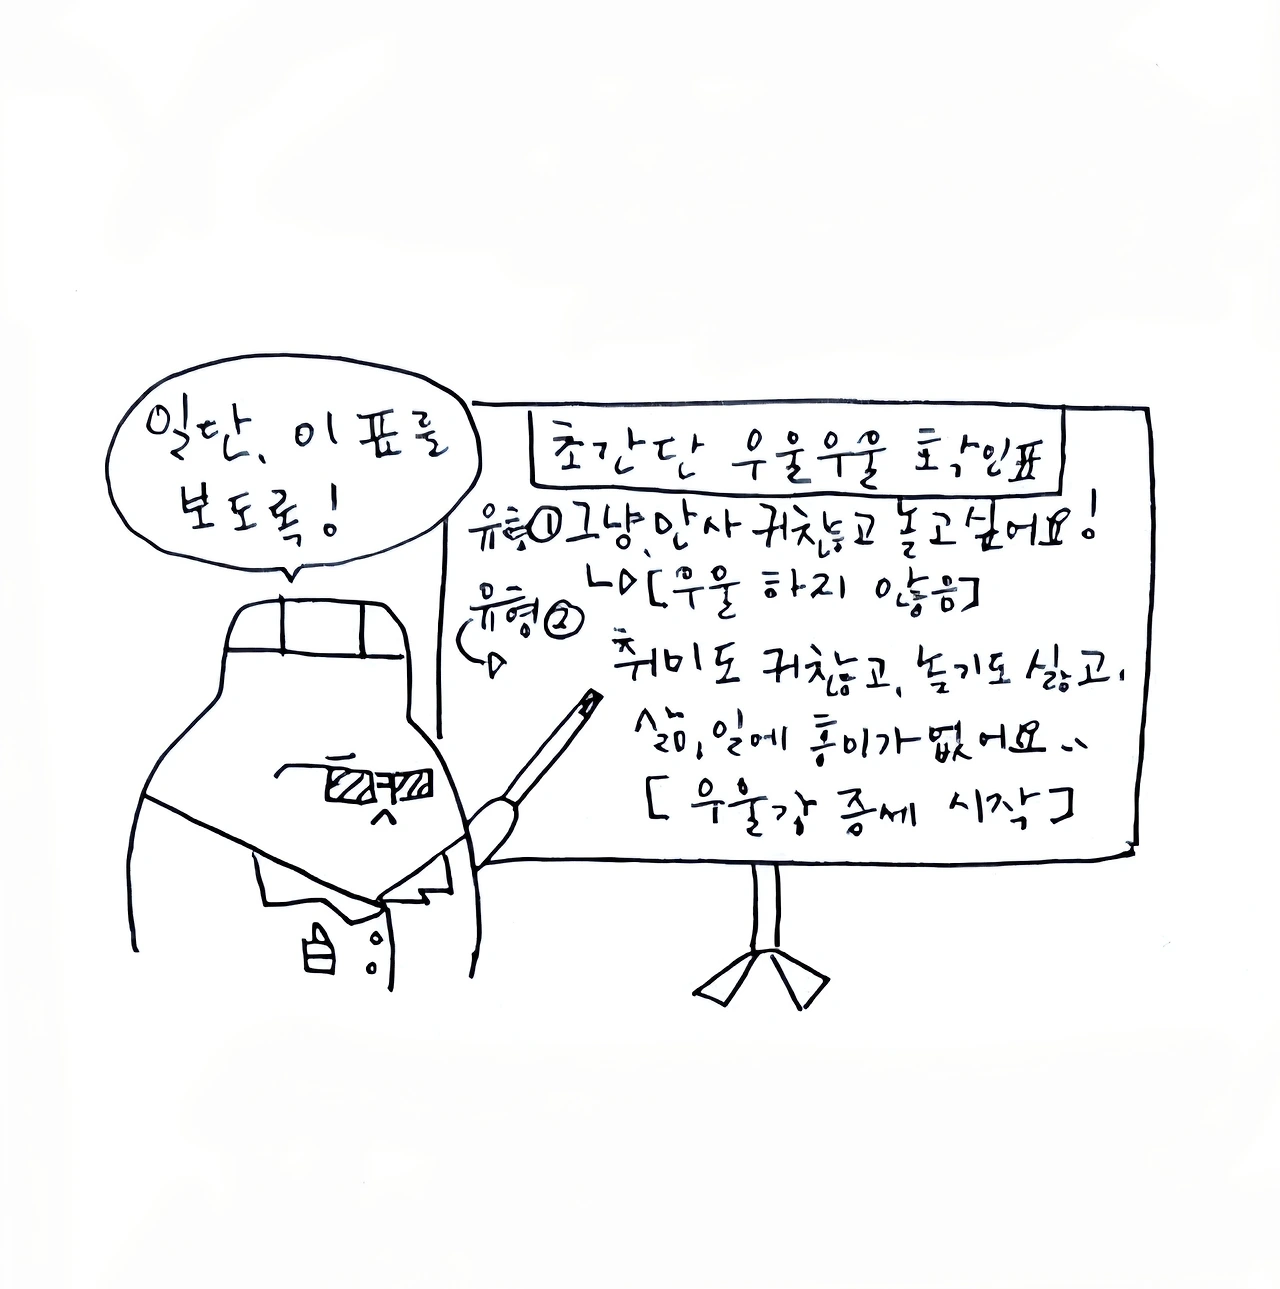 일단, 이 표를
보도록!
초간단 우울우울 확인표
유형① 그냥, 만사 귀찮고 놀고싶어요!
[우울 하지 않음]
유형②
취미도 귀찮고, 놀기도 싫고,
삶, 일에 흥미가 없어요..
[우울감 증세 시작]